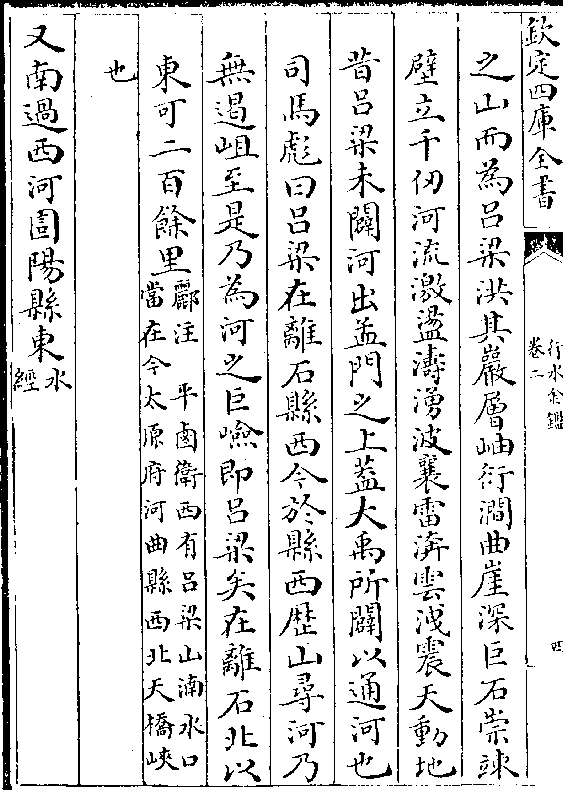 欽定四庫全書
行水金鑑
卷二
四
之山而為呂梁洪其巖層岫衍澗曲崖深巨石崇竦
壁立千仞河流激盪濤湧波襄雷渀雲洩震天動地
昔呂梁未闢河出孟門之上葢大禹所闢以通河也
司馬彪曰呂梁在離石縣西今於縣西歴山尋河乃
無過岨至是乃為河之巨嶮即呂梁矣在離石北以
東可二百餘里酈注 平鹵衛西有呂梁山湳水口
當在今太原府河曲縣西北天橋峽
也
又南過西河圁陽縣東水
經